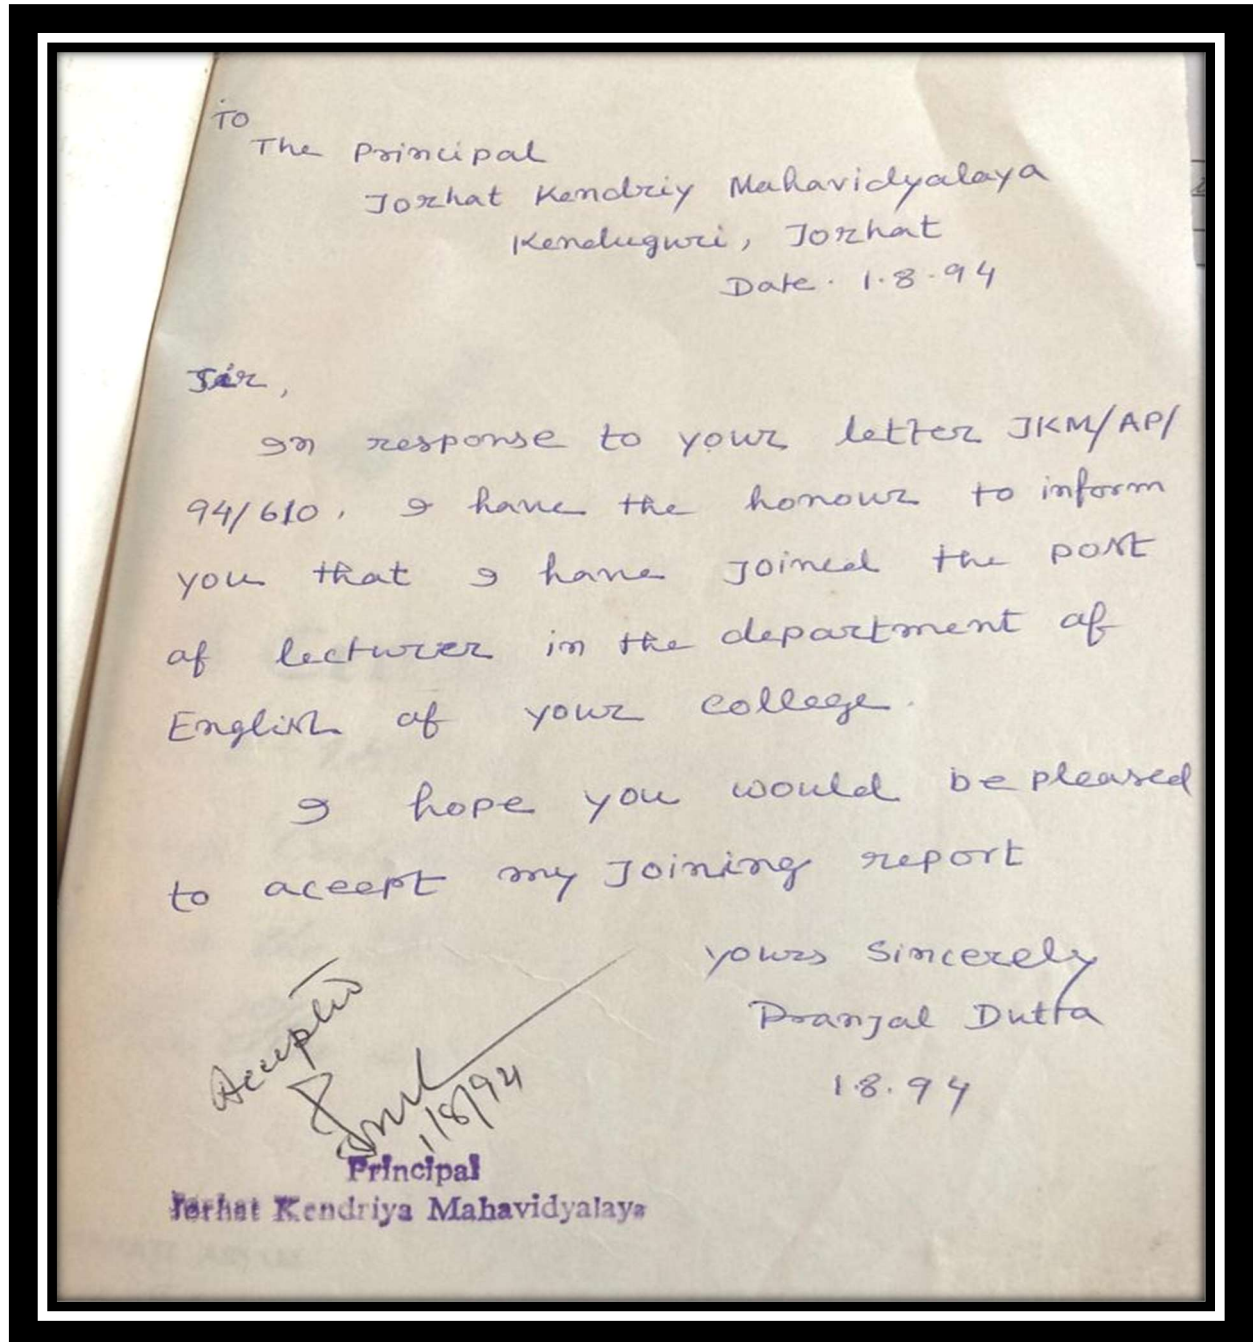 TO
The Principal
Jorhat Kendriy Mahavidyalaya
Kenduguri, Jorhat
Date. 1.8.94
Sir,
In response to your letter JKM/AP/
94/610, I have the honour to inform
you that I have joined the post
of lecturer in the department of
English of your college.
I hope you would be pleased
to aceept my Joining report
yours Sincerely
Pranjal Dutta
1.8.94
Accepted
1/8/94
Principal
Jorhat Kendriya Mahavidyalaya